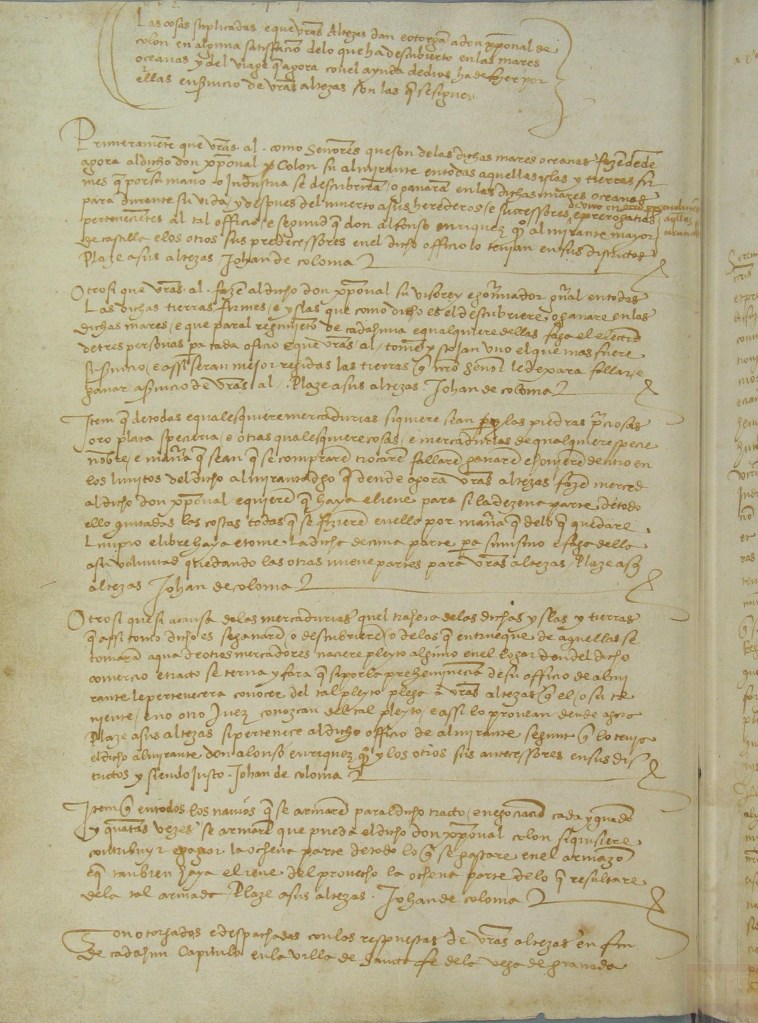 Las cosas suplicadas e que vr̃as Altezas dan e otorgã a don xp̃oual de
colon en alguna satisfacion delo que ha descubierto en las mares
oceanas y del viage q̃ agora con el ayuda de dios ha de fazer por
ellas en seruicio de vr̃as altezas son las q̃ se siguen
Primeramẽte que vr̃as al. como Señores que son delas dichas mares oceanas fazẽ dende
agora al dicho don xp̃oual Colon su almirante en todas aquellas islas y tierras fir
mes q̃ por su mano o industria se descubrirã o ganarã en las dichas mares oceanas
para durante su vida y despues del muerto a sus herederos e successores de uno en
pertenecientes al tal officio e segund q̃ don alfonso enrriquez q̃ almirante mayor
de castilla e los otros sus predecessores en el dicho officio lo tenian en sus districtos
Plaze a sus altezas Johan de coloma
Otrosi que vr̃as al. fazẽ al dicho don xp̃oual su visorey e gouernador gñal en todas
Las dichas tierras firmes e yslas que como dicho es el descubriere o ganare en las
dichas mares e que paral regimiẽto de cadahuna e qualquiere dellas faga el eleciõ
de tres personas pa cada oficio e que vr̃as al. tomẽ y scojan uno el que mas fuere
su seruicio e assi seran mejor regidas las tierras q̃ nr̃o señor le dexara fallar e
ganar a seruicio de vr̃as al. Plaze a sus altezas Johan de coloma
Item q̃ de todas e qualesquiere mercadurias siquiere sean perlas piedras p̃ciosas
oro plata specieria e otras qualesquiere cosas e mercadurias de qualquiere specie
nombre e manera q̃ sean q̃ se compraren trocaren fallaren ganaren e houieren dentro en
los limites del dicho almirantadgo q̃ dende agora vr̃as altezas fazẽ merced
al dicho don xp̃oual e quieren q̃ haya e lieue para si la dezena parte de todo
ello quitadas las costas todas q̃ se fizieren en ello por manera q̃ delo q̃ quedare
Limpio e libre haya e tome la dicha decima parte pa si mismo e faga dello
a su voluntad quedando las otras nueue partes para vr̃as altezas Plaze a sus
altezas Johan de coloma
Otrosi que si a causa delas mercadurias quel trahera de las dichas yslas y tierras
que assi como dicho es se ganarẽ o descubrierẽ o delas q̃ en trueque de aquellas se
tomarã aqua de otros mercadores naciere pleyto alguno en el logar dondel dicho
comercio e tracto se terna y fara q̃ si por la preheminencia de su officio de almi
rante le pertenecera conocer del tal pleyto plega a vr̃as altezas q̃ el o su te
niente e no otro Juez conozcan del tal pleyto e assi lo prouean dende agora
Plaze a sus altezas si pertenece al dicho officio de almirante segunt q̃ lo tenia
el dicho almirante don alonso enrriquez q̃ y los otros sus antecessores en sus dis
trictos y siendo justo. Johan de coloma
Item q̃ en todos los nauios q̃ se armarẽ paral dicho tracto e negociaciõ cada y quando
y quantas vezes se armarẽ que pueda el dicho don xp̃oual colon si quisiere
contribuyr e pagar la ochena parte de todo lo q̃ se gastare en el armazõ
e q̃ tambien haya e lieue del prouecho la ochena parte delo q̃ resultare
dela tal armada Plaze a sus altezas. Johan de coloma
Son otorgados e despachados con las respuestas de vr̃as altezas en fin
de cadahun Capitulo en la villa de Sancta fe dela vega de granada